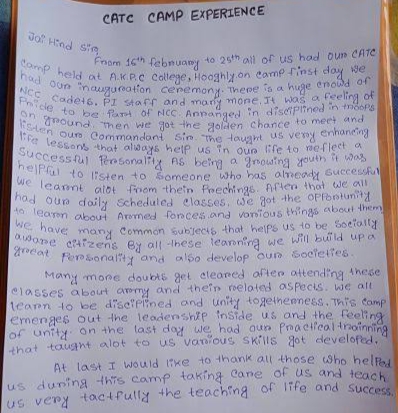 CATC CAMP EXPERIENCE
Jai Hind Sir
From 16th february to 25th all of us had our CATC
camp held at A.K.P.C College, Hooghly on camp first day we
had our inauguration ceremony. There is a huge crowd of
NCC cadets, PI staff and many more. It was a feeling of
Pride to be part of NCC. Arranged in disciplined in troops
on ground. Then we got the golden chance to meet and
listen our Commandant Sir. The taught us very enhancing
life lessons that always help us in our life to reflect a
successful Personality As being a growing youth it was
helpful to listen to someone who has already successful
we learnt alot from their Preachings. After that we all
had our daily scheduled classes. We got the opportunity
to learn about Armed forces and various things about them
we have many common subjects that helps us to be socially
aware citizens By all these learning we will build up a
great Personality and also develop our societies.
Many more doubts get cleared after attending these
classes about army and their related aspects. We all
learn to be disciplined and unity togetherness. This camp
emerges out the leadership inside us and the feeling
of unity. On the last day we had our Practical trainning
that taught alot to us various skills got developed.
At last I would like to thank all those who helped
us during this camp taking care of us and teach
us very tactfully the teaching of life and success.